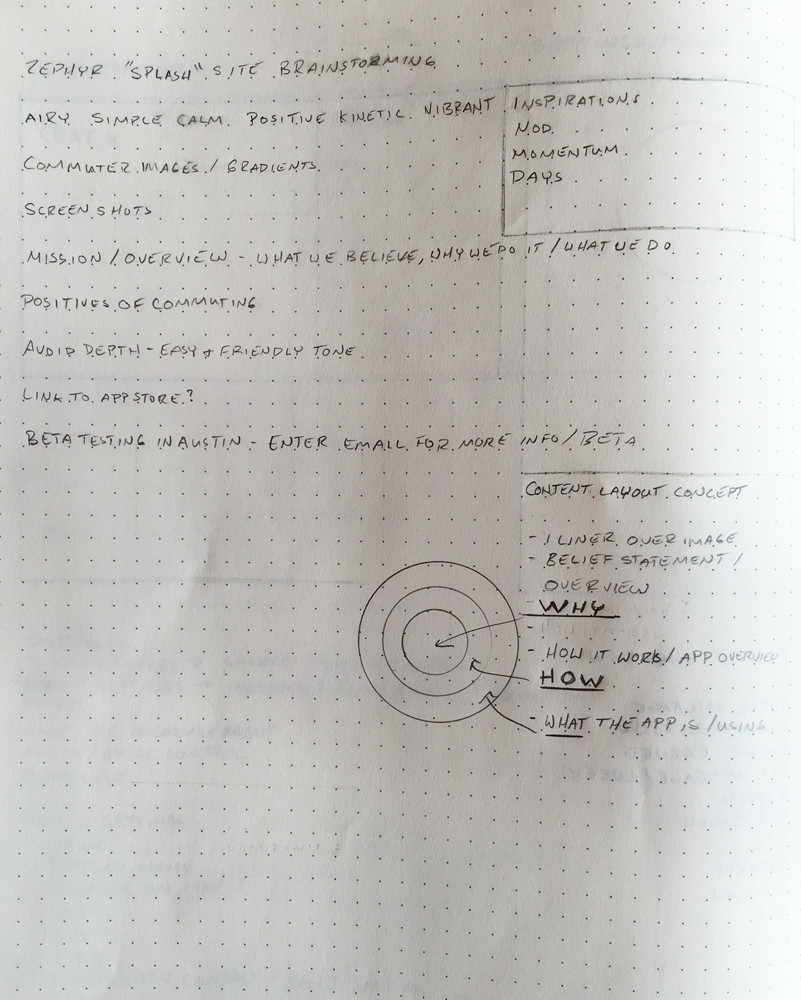 ZEPHYR "SPLASH" SITE BRAINSTORMING
AIRY. SIMPLE CALM. POSITIVE KINETIC. VIBRANT
COMMUTER IMAGES / GRADIENTS.
SCREEN SHOTS
MISSION / OVERVIEW - WHAT WE BELIEVE, WHY WE DO IT / WHAT WE DO
POSITIVES OF COMMUTING
AVOID DEPTH - EASY & FRIENDLY TONE.
LINK TO APP STORE?
BETA TESTING IN AUSTIN - ENTER EMAIL FOR MORE INFO / BETA
INSPIRATIONS
NOD
MOMENTUM
DAYS
CONTENT LAYOUT CONCEPT
- 1 LINER OVER IMAGE
- BELIEF STATEMENT /
OVERVIEW
- WHY
-
- HOW IT WORKS / APP OVERVIEW
HOW
- WHAT THE APP IS / USING